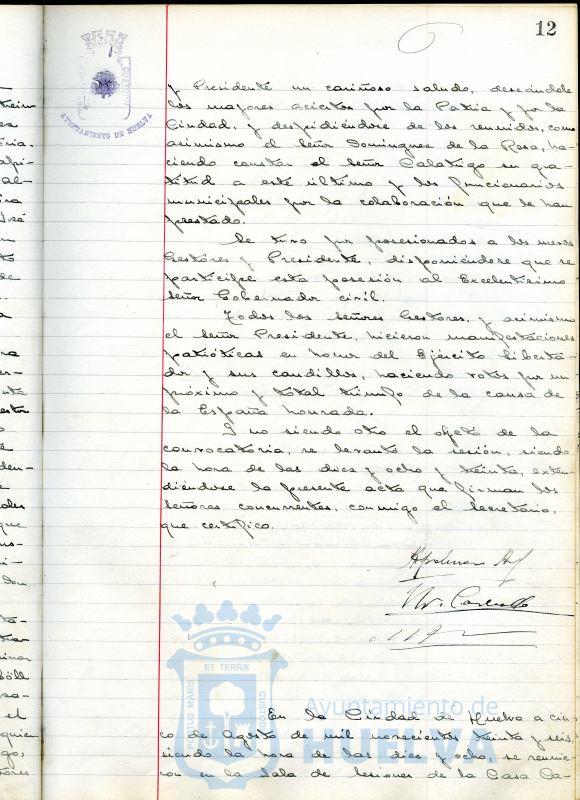 12
AYUNTAMIENTO DE HUELVA
y Presidente un cariñoso saludo, deseándole
los mayores aciertos por la Patria y por la
Ciudad, y despidiéndose de los reunidos, como
asimismo el Señor Dominguez de la Rosa, ha-
ciendo constar el Señor Calatrigo su gra-
titud a este último y los funcionarios
municipales por la colaboración que le han
prestado.
Se tuvo por posesionados a los nuevos
Gestores y Presidente, disponiéndose que se
participe esta posesión al Excelentísimo
Señor Gobernador civil.
Todos los señores Gestores, y asimismo
el señor Presidente, hicieron manifestaciones
patrióticas en honor del Ejército liberta-
dor y sus caudillos, haciendo votos por un
próximo y total triunfo de la causa de
la España honrada.
Y no siendo otro el objeto de la
convocatoria, se levantó la sesión, siendo
la hora de las diez y ocho y treinta, exten-
diéndose la presente acta que firman los
señores concurrentes, conmigo el Secretario,
que certifico.
ET TERRÆ
PORTUS MARIS
CUSTODIA
Ayuntamiento de
HUELVA
En la Ciudad de Huelva a cin-
co de Agosto de mil novecientos treinta y seis,
siendo la hora de las diez y ocho, se reunie-
ron en la Sala de Sesiones de la Casa Ca-